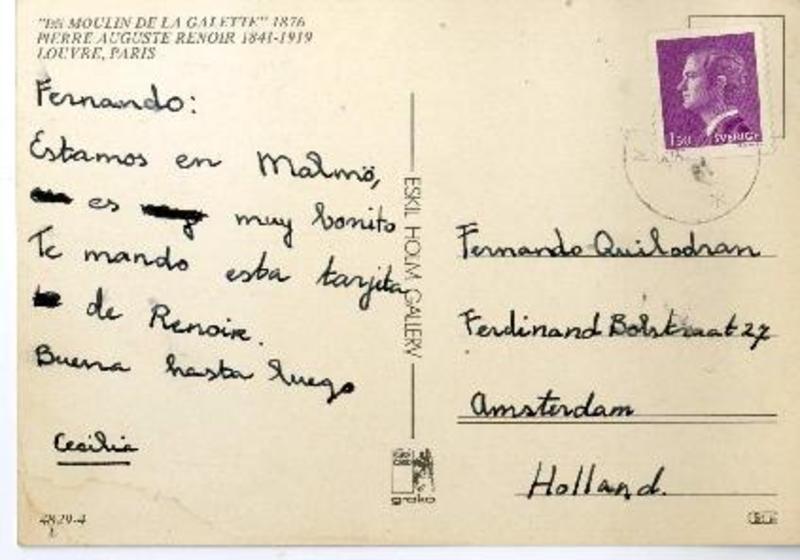 "LE MOULIN DE LA GALETTE" 1876
PIERRE AUGUSTE RENOIR 1841-1919
LOUVRE, PARIS
Fernando:
Estamos en Malmö,
es muy bonito
Te mando esta tarjita
de Renoir.
Buena hasta luego
Cecilia
4829-4
ESKIL HOLM GALLERY
grako
1.50 SVERIGE
Fernando Quilodran
Ferdinand Bolstraat 27
Amsterdam
Holland.